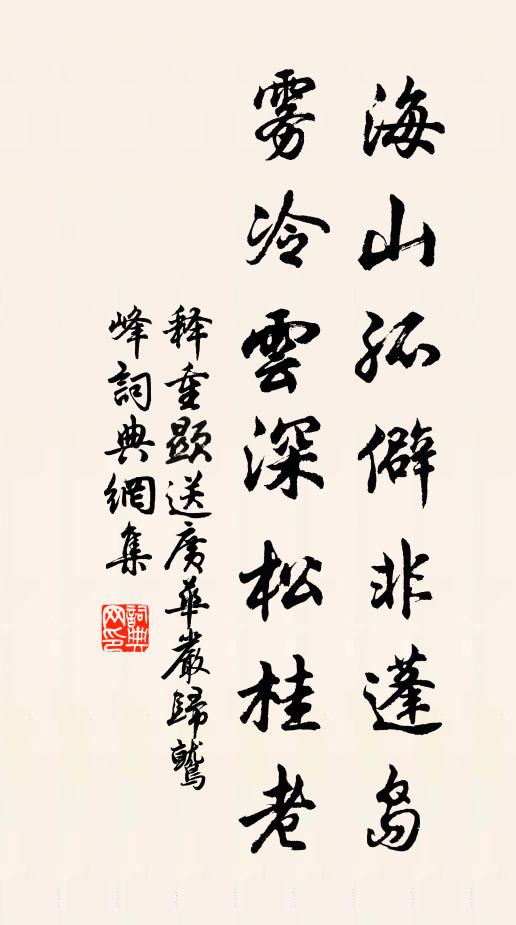 海山孤僻非蓬島
雾冷雲深松桂老
释重顯送廣華嚴歸鷲
峰詞典網集
詞典网印